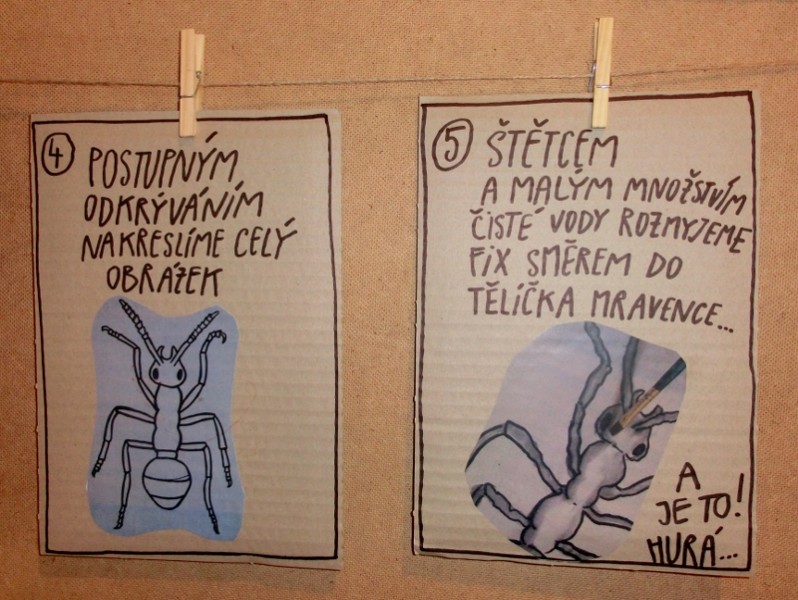 4 POSTUPNÝM
ODKRÝVÁNÍM
NAKRESLÍME CELÝ
OBRÁZEK
5 ŠTĚTCEM
A MALÝM MNOŽSTVÍM
ČISTÉ VODY ROZMYJEME
FIX SMĚREM DO
TĚLÍČKA MRAVENCE...
A
JE TO!
HURÁ...